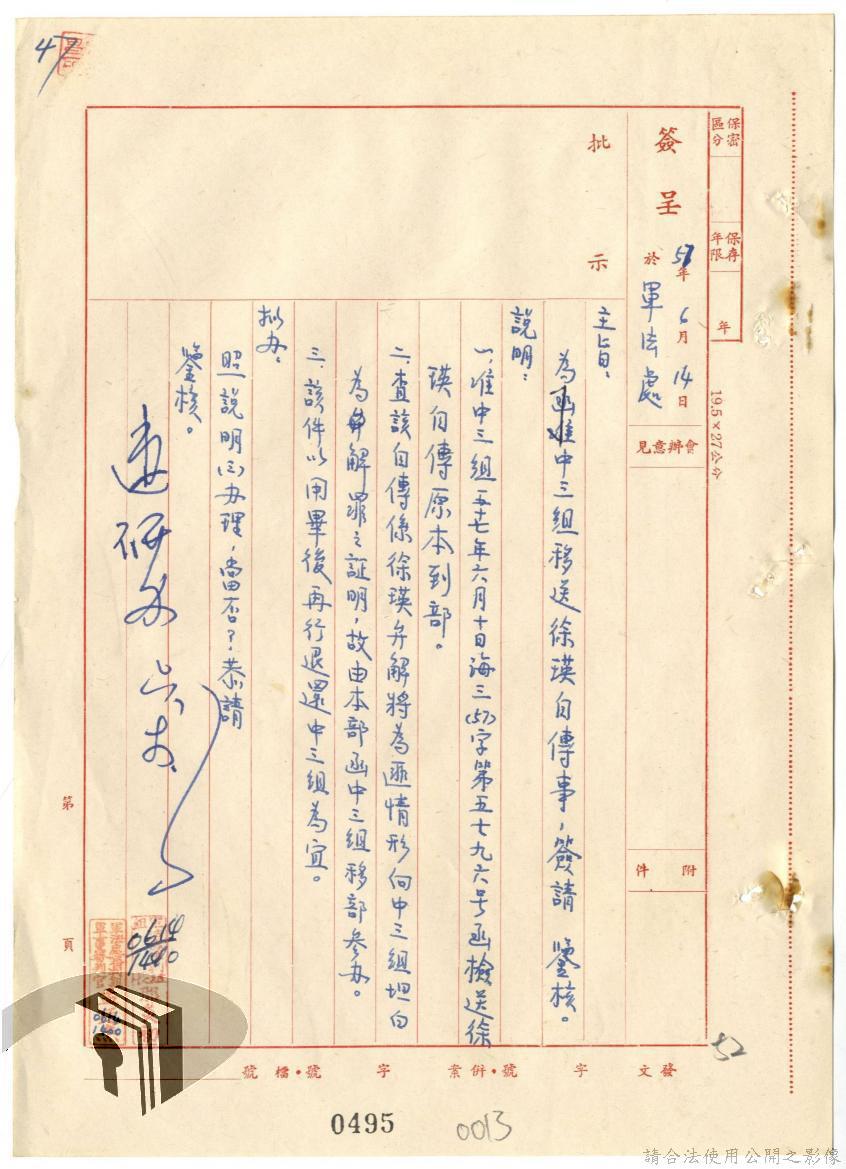 47
保密區分
保存年限
年
19.5×27公分
簽呈
57年6月14日
於 軍法處
會辦意見
附件
批示
主旨：
為函准中三組移送徐瑛自傳事，簽請 鑒核。
說明：
一、准中三組五十七年六月十日海三(57)字第五七九六号函檢送徐
瑛自傳原本到部。
二、查該自傳係徐瑛弁解將為匪情形向中三組坦白
為弁解罪之証明，故由本部函中三組移部參办。
三、該件以用畢後再行退還中三組為宜。
拟办：
照說明(三)办理，當否？恭請
鑒核。
0614
1400
0614
1400
第
頁
52
發文 字 號·併案 字 號·檔 號
0495
0013
請合法使用公開之影像